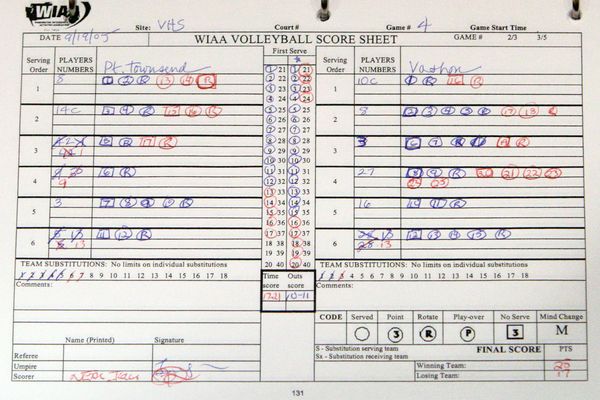 WIAA
Site: VHS Court # Game # 4 Game Start Time
DATE 9/19/05 WIAA VOLLEYBALL SCORE SHEET GAME # 2/3 3/5
First Serve
Serving Order PLAYERS NUMBERS Pt. Townsend
Serving Order PLAYERS NUMBERS Vashon
1 8 1 2 R 13 14 R
1 10C 1 R 16 R
2 14C 3 4 R 15 16 R
2 8 2 3 4 5 6 17 18
3
3 3 6 7 R
4 9 6 R
4 27 8 9 R 20 21 22 23
24 25
5 3 7 8 9 10 R
5 16 10 11 R
6 13 11 12 R
6 13 12 13 14 15 R
1 21 1 21
2 22 2 22
3 23 3 23
4 24 4 24
5 25 5 25
6 26 6 26
7 27 7 27
8 28 8 28
9 29 9 29
10 30 10 30
11 31 11 31
12 32 12 32
13 33 13 33
14 34 14 34
15 35 15 35
16 36 16 36
17 37 17 37
18 38 18 38
19 39 19 39
20 40 20 40
TEAM SUBSTITUTIONS: No limits on individual substitutions
1 2 3 4 5 6 7 8 9 10 11 12 13 14 15 16 17 18
Comments:
Time Outs
score score
17-21 10-11
TEAM SUBSTITUTIONS: No limits on individual substitutions
1 2 3 4 5 6 7 8 9 10 11 12 13 14 15 16 17 18
Comments:
CODE Served Point Rotate Play-over No Serve Mind Change
3 R P 3 M
S - Substitution serving team
Sx - Substitution receiving team
FINAL SCORE PTS
Winning Team: 25
Losing Team: 17
Name (Printed) Signature
Referee
Umpire
Scorer
131